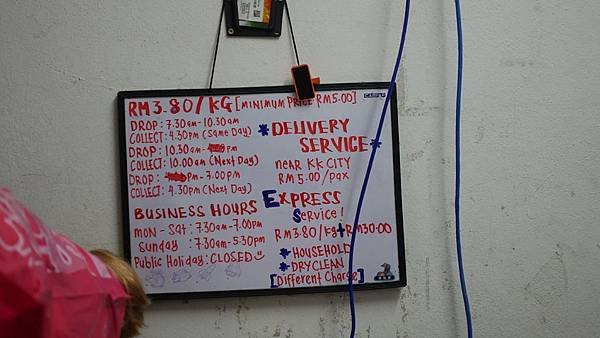 RM3.80/KG [MINIMUM PRICE RM5.00]
DROP: 7.30am-10.30am
COLLECT: 4.30pm (Same Day)
DROP: 10.30am- pm
COLLECT: 10.00am (Next Day)
DROP: pm-7.00pm
COLLECT: 4.30pm (Next Day)
BUSINESS HOURS
MON - SAT: 7.30am-7.00pm
Sunday : 7.30am-5.30pm
Public Holiday: CLOSED
*DELIVERY
SERVICE*
neAR KK CITY
RM 5.00/pax
EXPRESS
Service!
RM3.80/Kg+RM30.00
*HOUSEHOLD
*DRYCLEAN
[Different Charge]